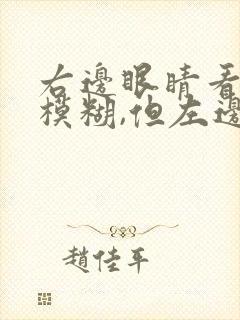 右邊眼睛看
模糊,但左邊
趙佳平